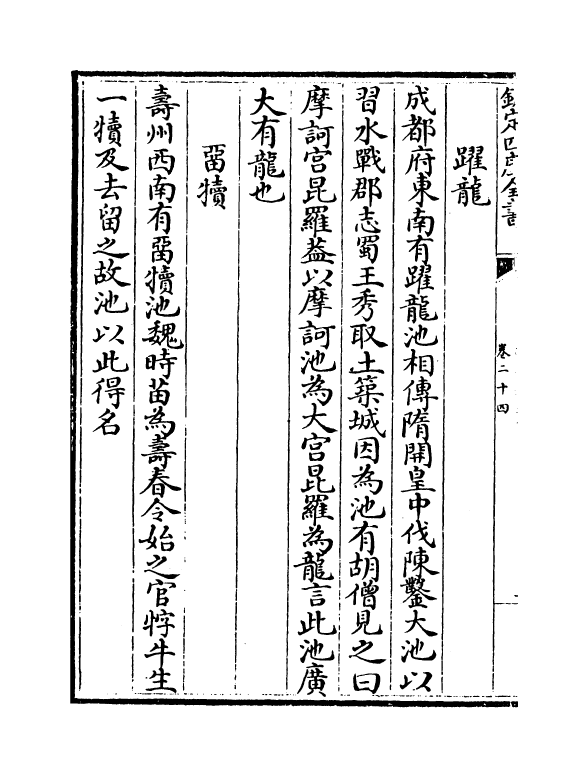 欽定四庫全書
卷二十四
躍龍
成都府東南有躍龍池相傳隋開皇中伐陳鑿大池以
習水戰郡志蜀王秀取土築城因為池有胡僧見之曰
摩訶宫昆羅葢以摩訶池為大宫昆羅為龍言此池廣
大有龍也
畱犢
壽州西南有畱犢池魏時苗為壽春令始之官牸牛生
一犢及去留之故池以此得名